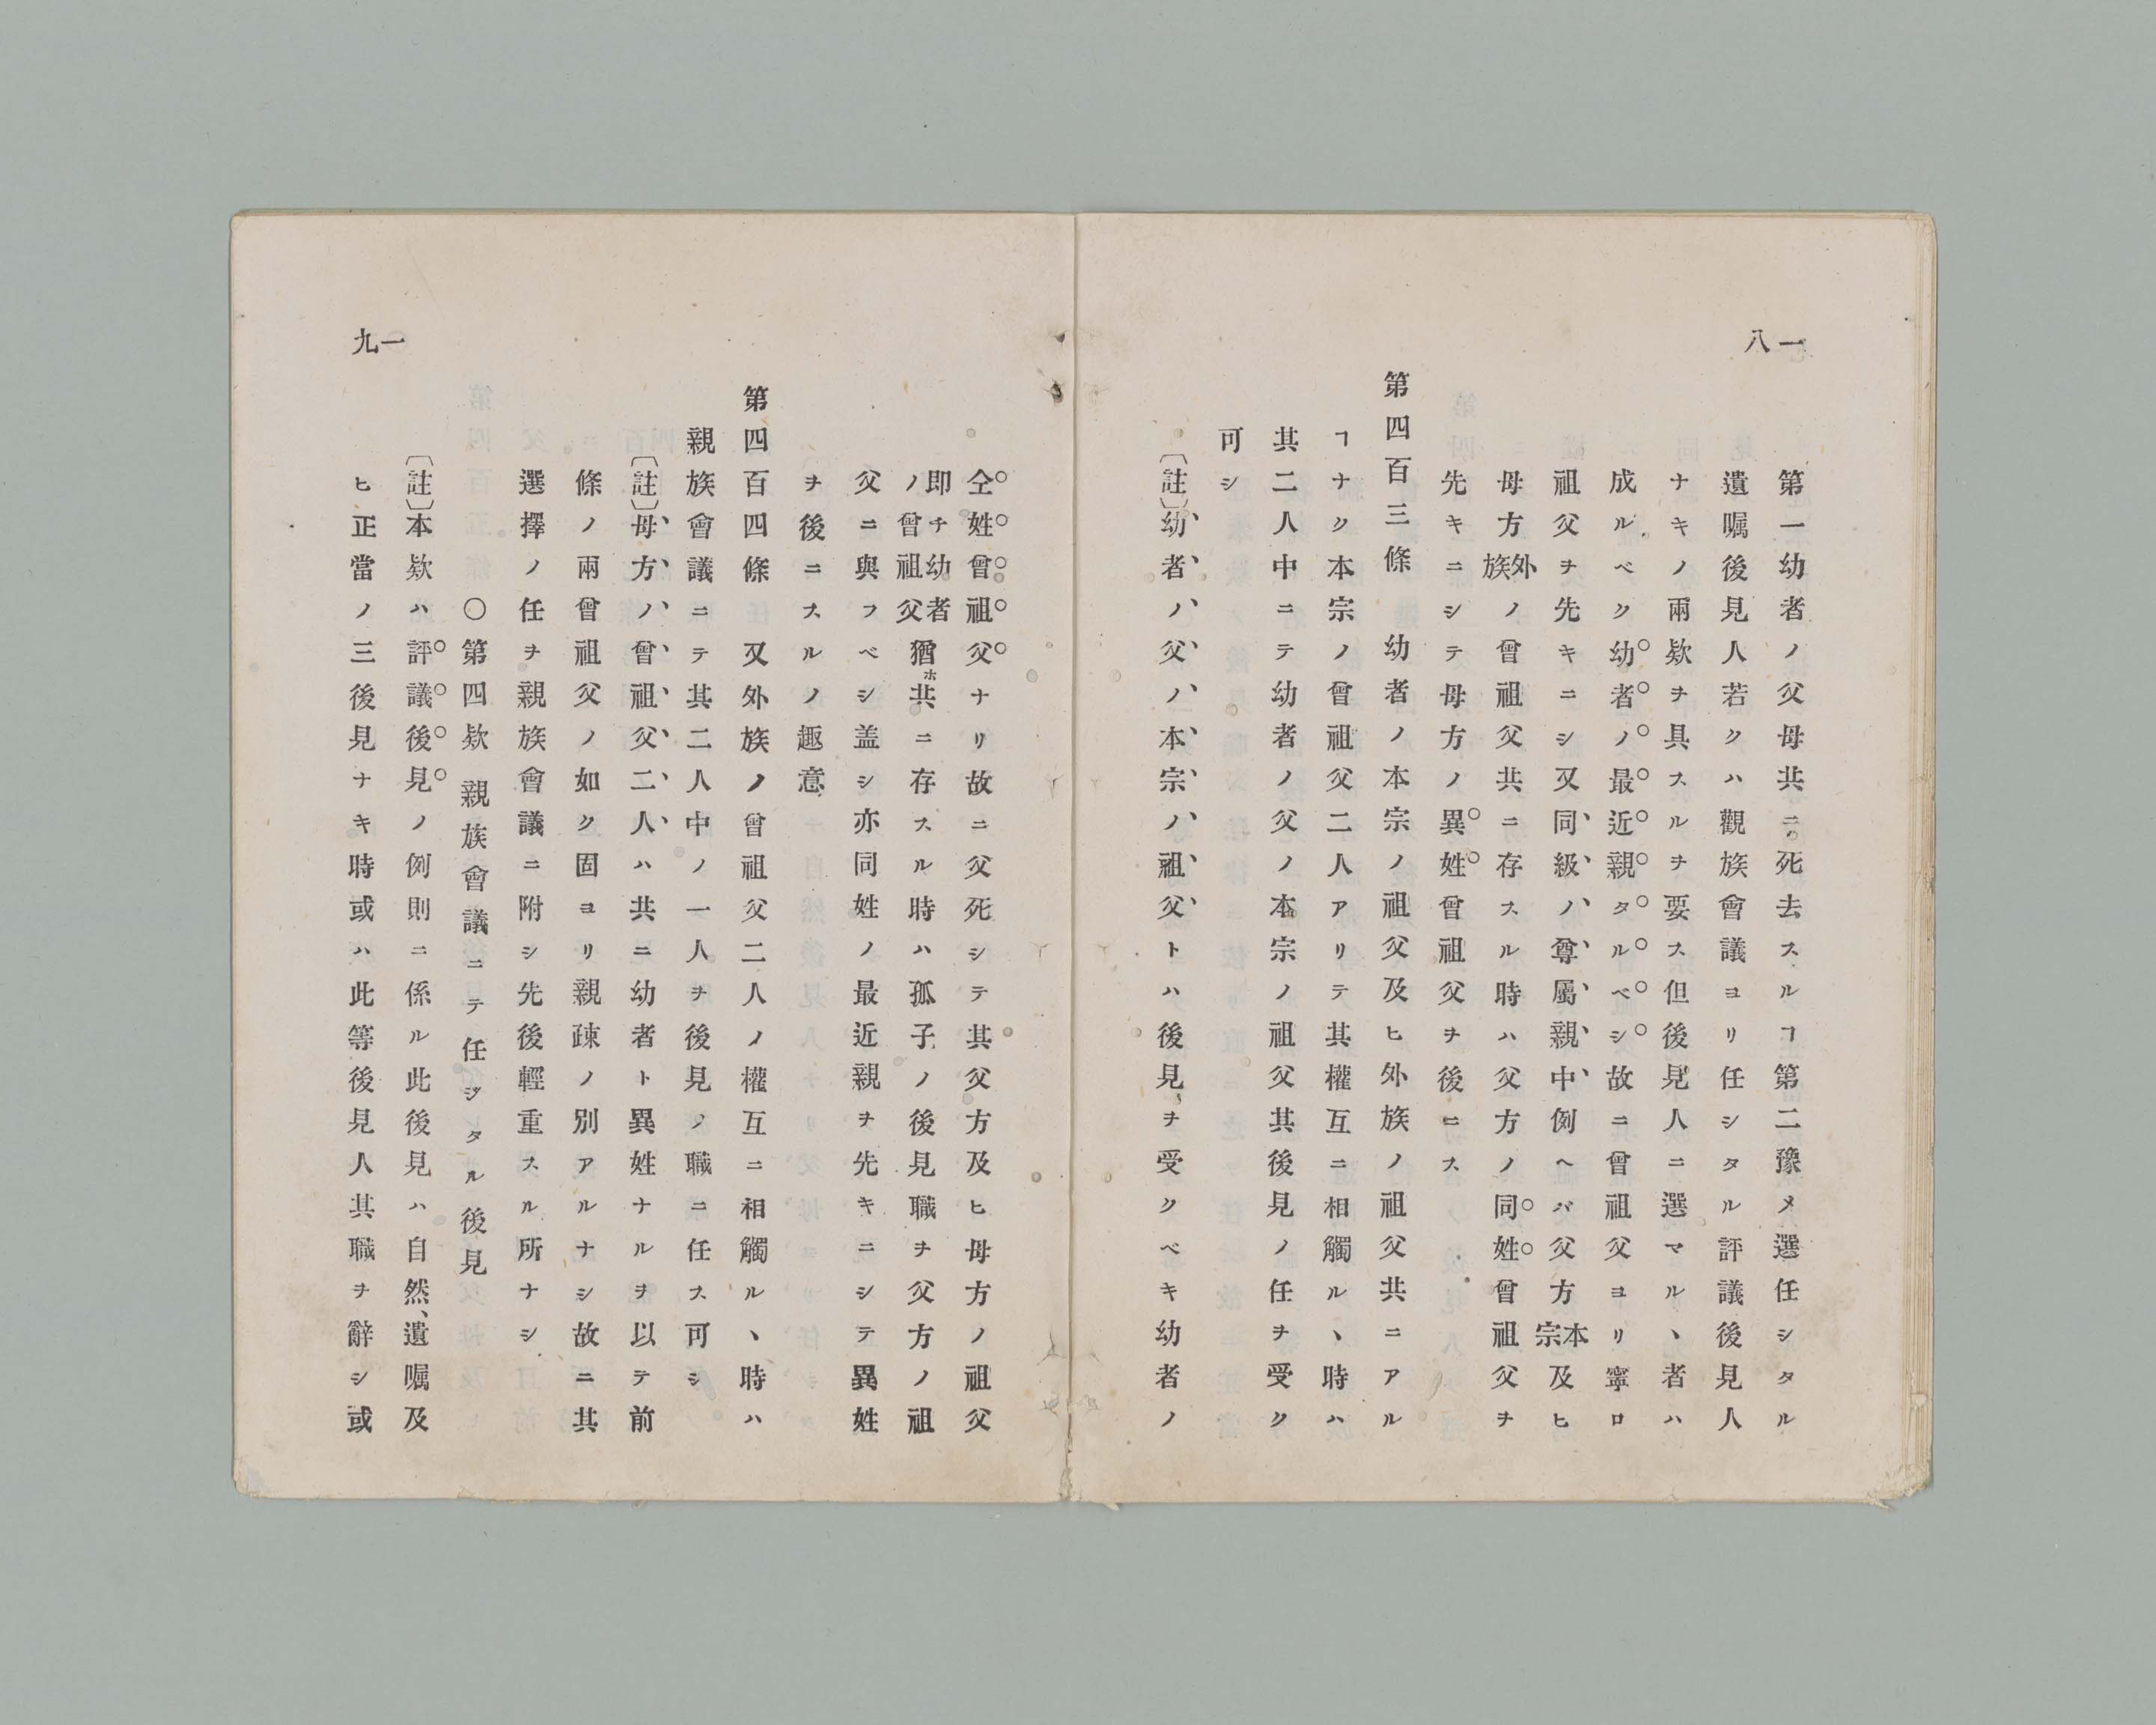 一八
第一幼者ノ父母共ニ死去スルヿ第二豫メ選任シタル
遺囑後見人若クハ觀族會議ヨリ任シタル評議後見人
ナキノ兩欵ヲ具スルヲ要ス但後見人ニ選マルヽ者ハ
成ルベク幼者ノ最近親タルベシ故ニ曾祖父ヨリ寧ロ
祖父ヲ先キニシ又同級ノ尊屬親中例ヘバ父方本宗及ヒ
母方外族ノ曾祖父共ニ存スル時ハ父方ノ同姓曾祖父ヲ
先キニシテ母方ノ異姓曾祖父ヲ後ニス
第四百三條　幼者ノ本宗ノ祖父及ヒ外族ノ祖父共ニアル
ヿナク本宗ノ曾祖父二人アリテ其權互ニ相觸ルヽ時ハ
其二人中ニテ幼者ノ父ノ本宗ノ祖父其後見ノ任ヲ受ク
可シ
〔註〕幼者ノ父ノ本宗ノ祖父トハ後見ヲ受クベキ幼者ノ
仝姓曾祖父ナリ故ニ父死シテ其父方及ヒ母方ノ祖父
即チ幼者ノ曾祖父猶ホ共ニ存スル時ハ孤子ノ後見職ヲ父方ノ祖
父ニ與フベシ盖シ亦同姓ノ最近親ヲ先キニシテ異姓
ヲ後ニスルノ趣意
第四百四條　又外族ノ曾祖父二人ノ權互ニ相觸ルヽ時ハ
親族會議ニテ其二人中ノ一人ヲ後見ノ職ニ任ス可シ
〔註〕母方ノ曾祖父二人ハ共ニ幼者ト異姓ナルヲ以テ前
條ノ兩曾祖父ノ如ク固ヨリ親疎ノ別アルナシ故ニ其
選擇ノ任ヲ親族會議ニ附シ先後輕重スル所ナシ
〇第四欵　親族會議ニテ任ジタル後見
〔註〕本欵ハ評議後見ノ例則ニ係ル此後見ハ自然、遺囑及
ヒ正當ノ三後見ナキ時或ハ此等後見人其職ヲ辭シ或
一九